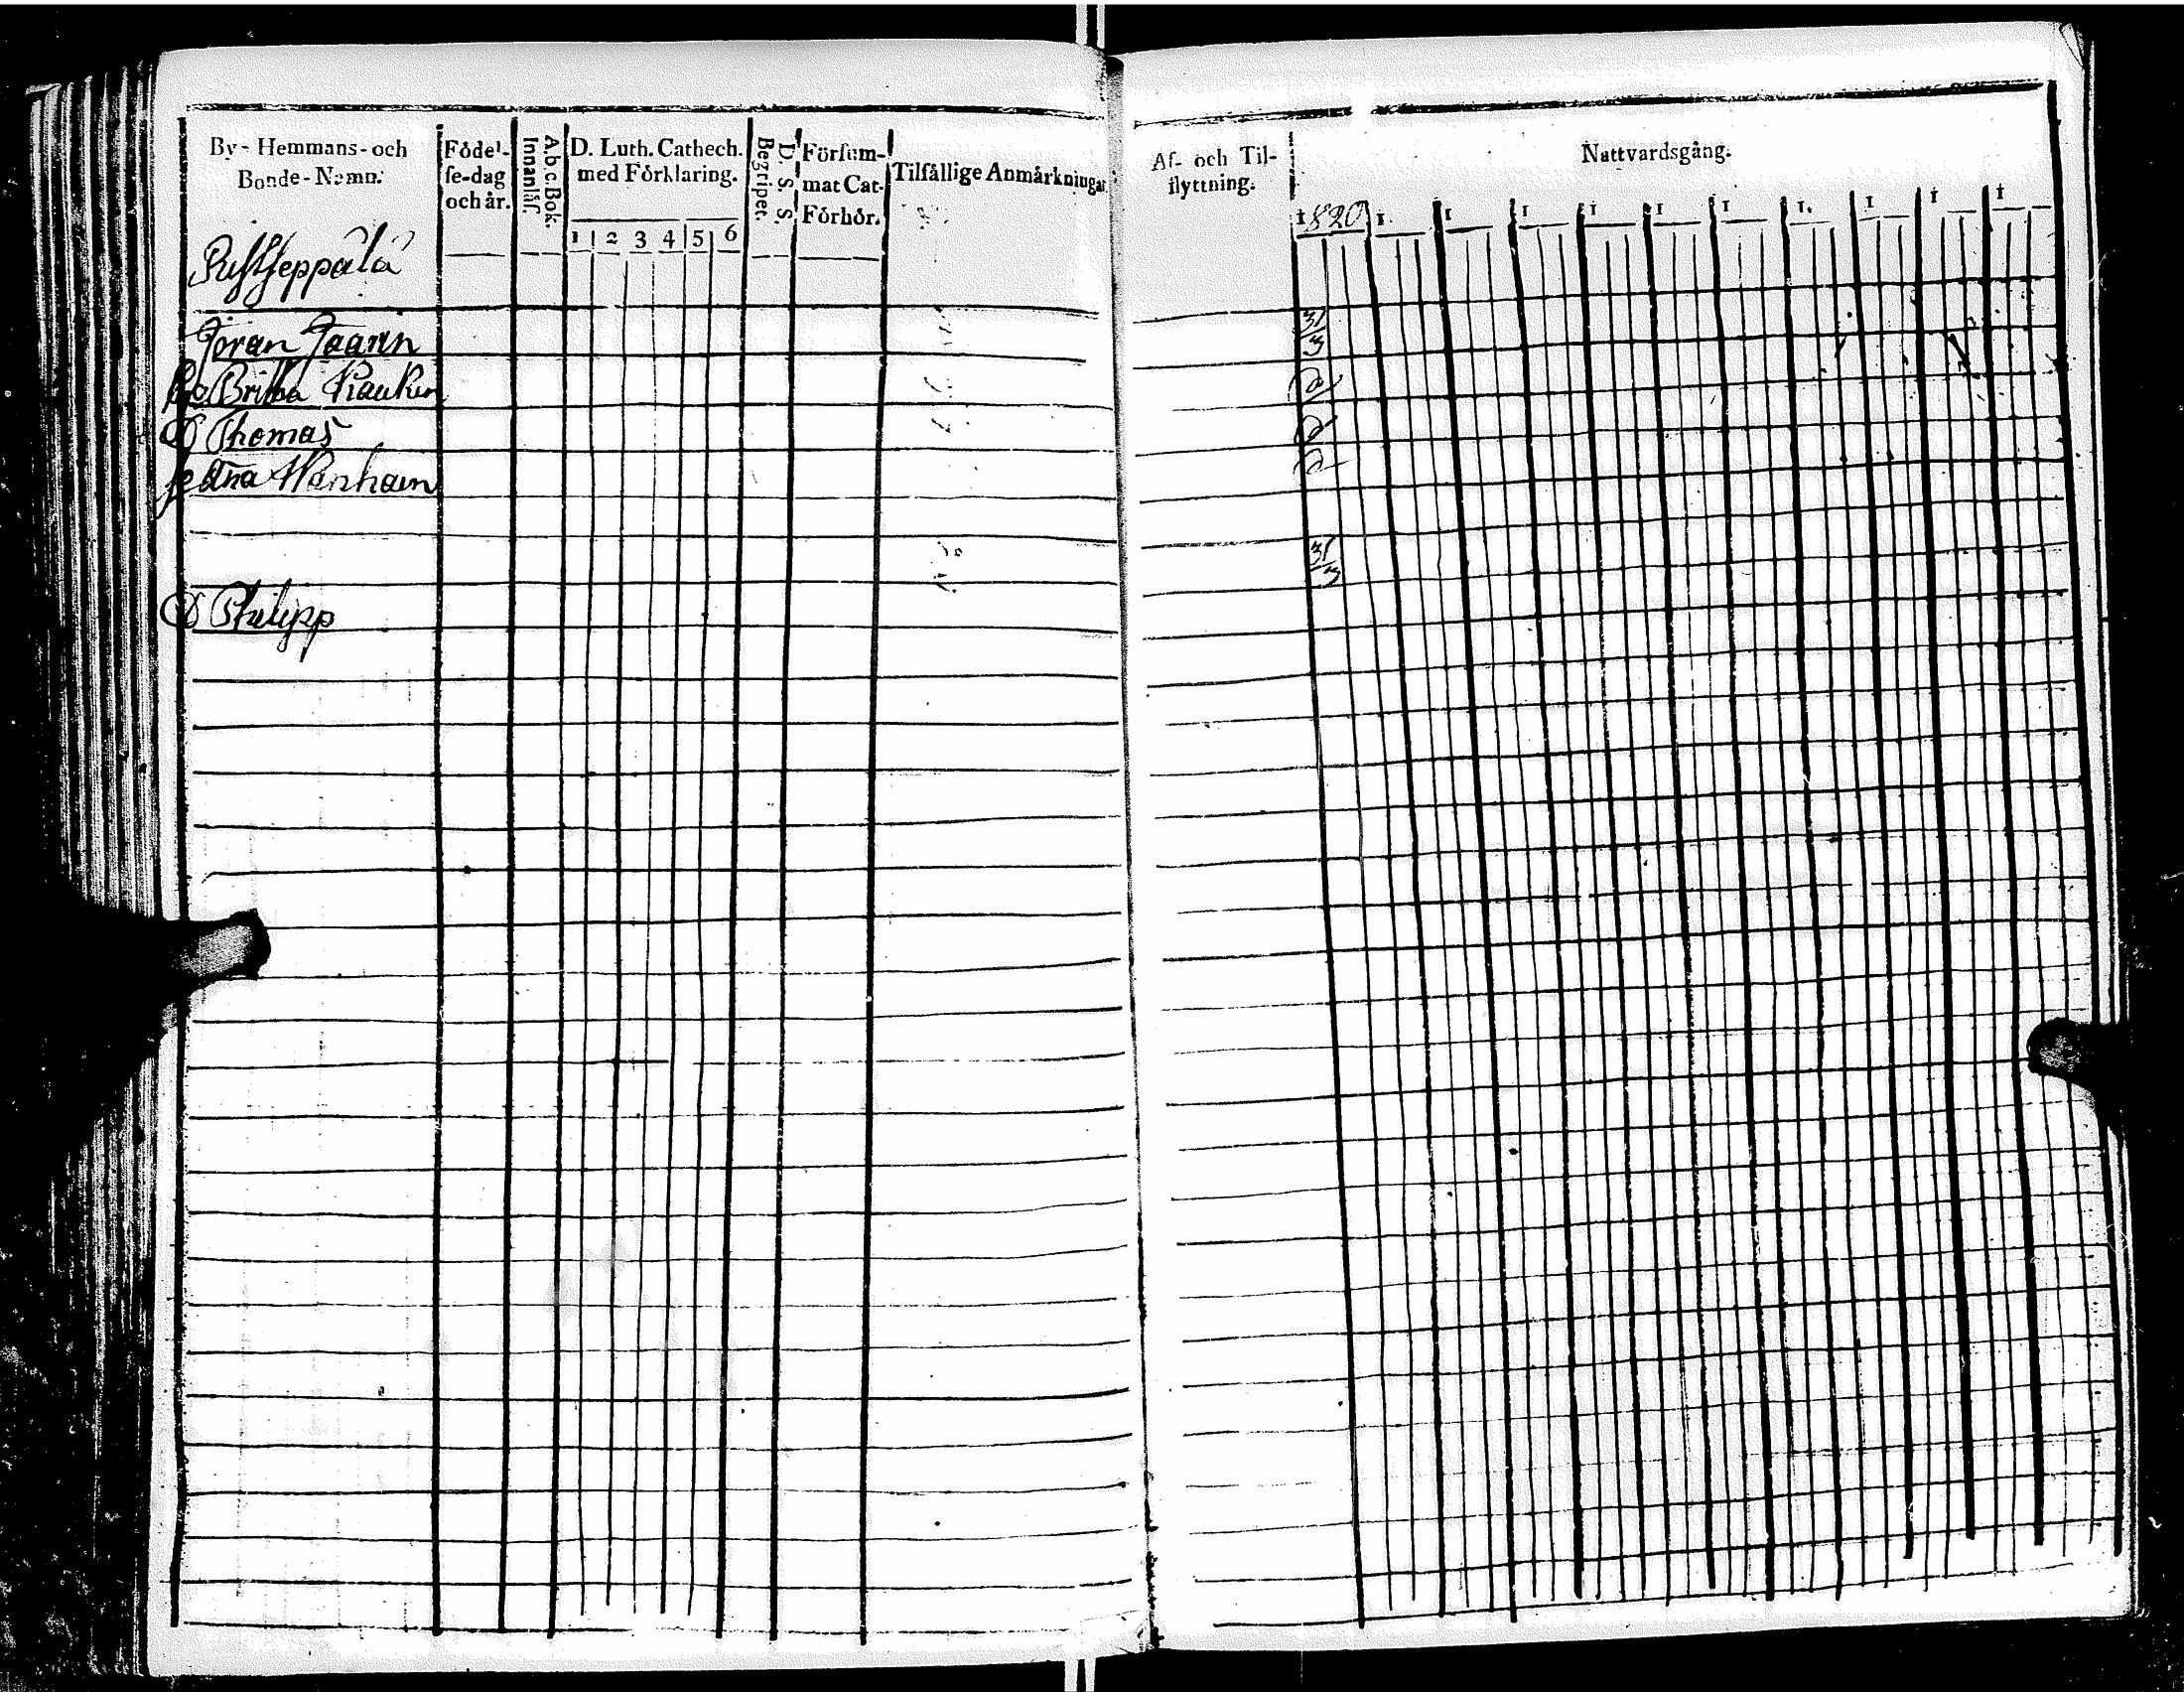 By- Hemmans- och
Bonde-Namn.
Födel-
se-dag
och år.
A.b.c Bok.
Innanläs.
D. Luth. Cathech.
med Förklaring.
1 2 3 4 5 6
D. S. S.
Begripet.
Försum-
mat Cat-
Förhör.
Tilfällige Anmärkningar
Göran Jaarin
Britha
D Thomas
Anna
D Philipp
Af- och Til-
flyttning.
Nattvardsgång.
1820 1 1 1 1 1 1 1. 1 1 1
31
3
31
3